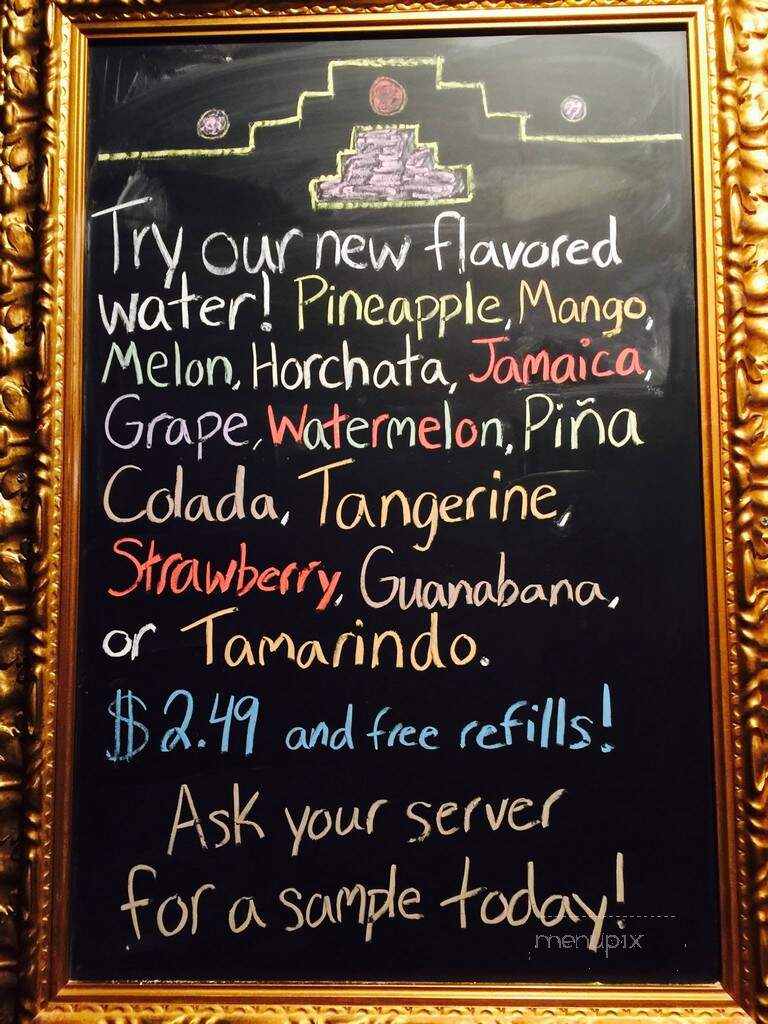 Try our new flavored
water! Pineapple, Mango,
Melon, Horchata, Jamaica,
Grape, Watermelon, Piña
Colada, Tangerine,
Strawberry, Guanabana,
or Tamarindo.
$2.49 and free refills!
Ask your server
for a sample today!
menupix